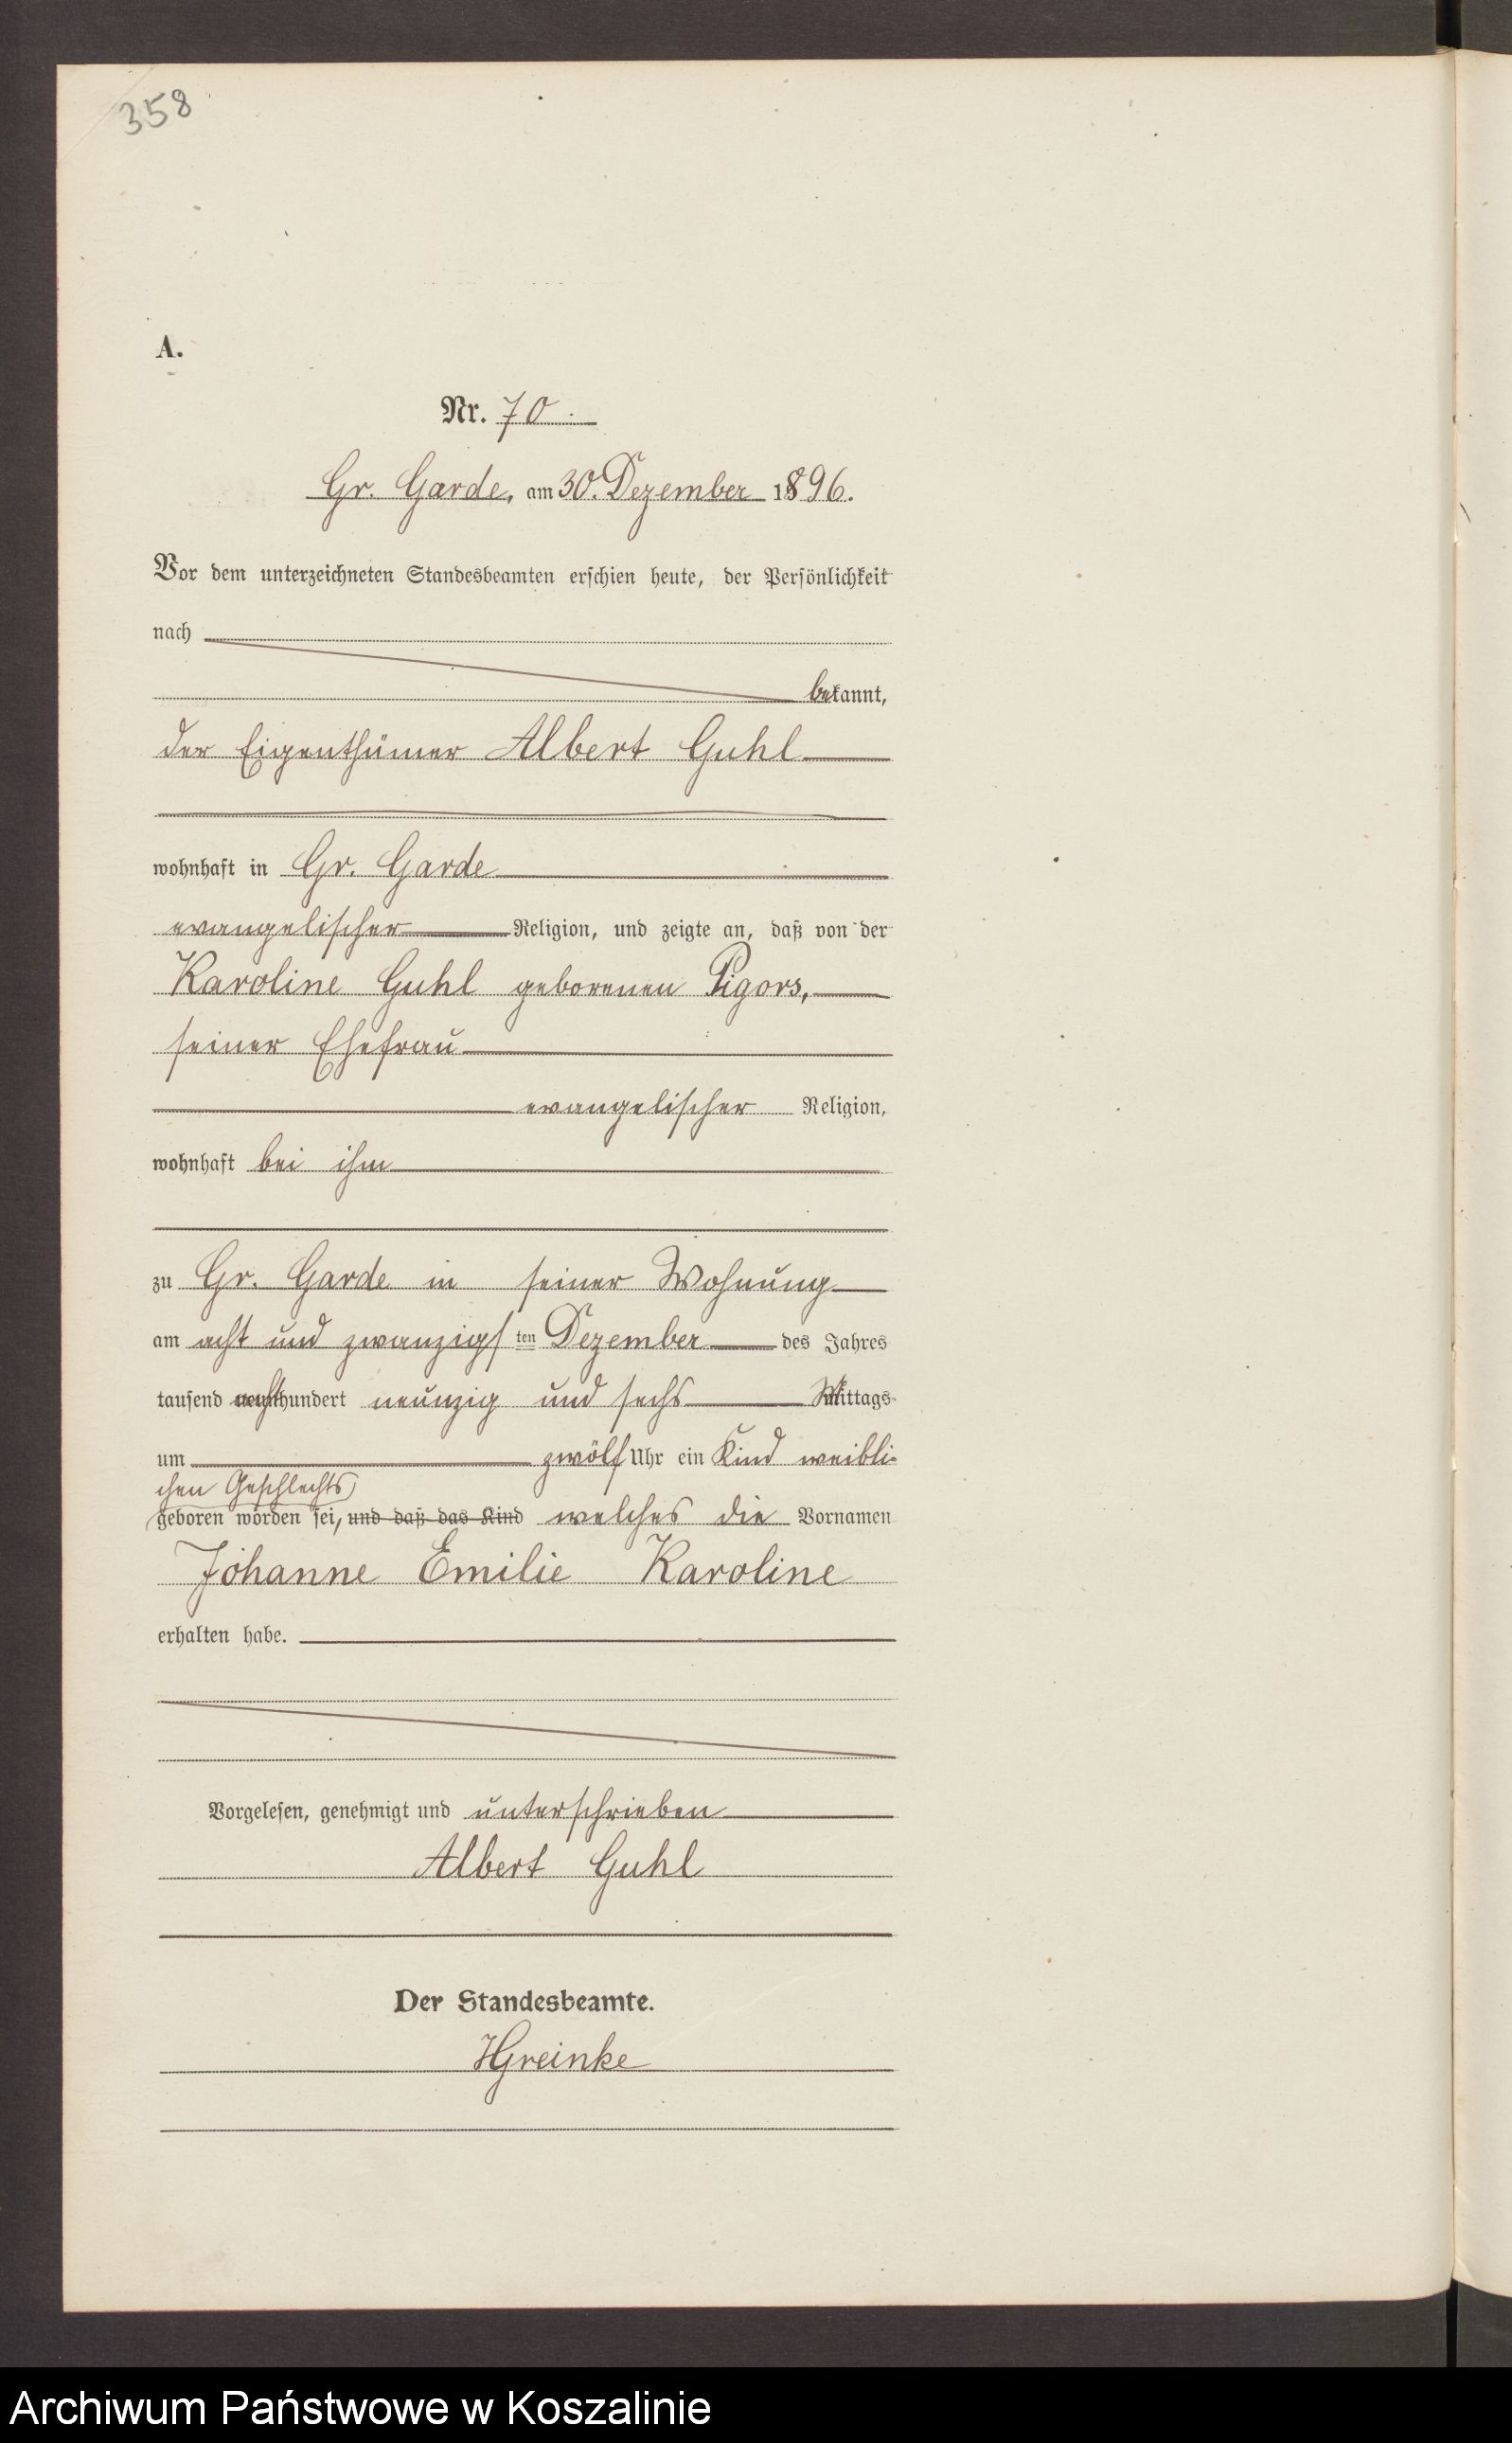 358
A.
Nr. 70.
Gr. Garde, am 30. Dezember 1896.
Vor dem unterzeichneten Standesbeamten erschien heute, der Persönlichkeit
nach
bekannt,
der Eigenthümer Albert Guhl
wohnhaft in Gr. Garde
evangelischer Religion, und zeigte an, daß von der
Karoline Guhl geborenen Pigors,
seiner Ehefrau
evangelischer Religion,
wohnhaft bei ihm
zu Gr. Garde in seiner Wohnung
am acht und zwanzigsten Dezember des Jahres
tausend achthundert neunzig und sechs Mittags
um zwölf Uhr ein Kind weibli-
chen Geschlechts
geboren worden sei, und daß das Kind welches die Vornamen
Johanne Emilie Karoline
erhalten habe.
Vorgelesen, genehmigt und unterschrieben
Albert Guhl
Der Standesbeamte.
HGreinke
Archiwum Państwowe w Koszalinie